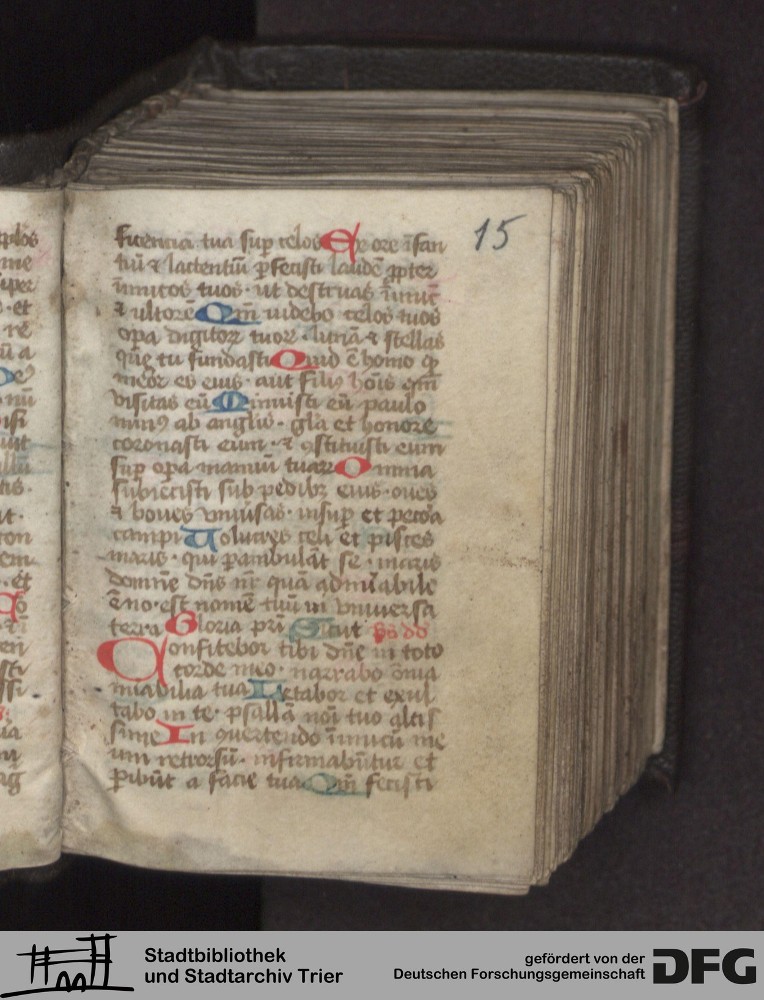 ficencia tua sup celos Ex ore ĩfan
tiũ ⁊ lactentiũ ꝑfecisti laudẽ ꝓpter
inimicos tuos · ut destruas inimicũ
⁊ ultorẽ Qm̃ uidebo celos tuos
opa digitoꝝ tuoꝝ · lunã ⁊ stellas
que tu fundasti Quid ẽ homo ꝙ
memor es eius · aut filiꝰ hõis qm̃
visitas eũ Minuisti eũ paulo
minꝰ ab anglis · gl̃a et honore
coronasti eum · ⁊ ꝯstituisti eum
sup opa manuũ tuaꝝ Omnia
subiecisti sub pedibꝫ eius · oues
⁊ boues vniũsas · insup et pecora
campi Uolucres celi et pisces
maris · qui ꝑambulãt se · maris
domine dñs nr̃ quã admirabile
est nomẽ tuũ in vniuersa
terra Gloria pr̃i Sicut p̃s dd
Confitebor tibi dñe in toto
corde meo · narrabo om̃ia
mirabilia tua Letabor et exul
tabo in te · psallã noĩ tuo altis
sime In querte̅ndo inimicũ me
um retrorsũ · infirmabũtur et
ꝑibũt a facie tua Qm̃ fecisti
15
Stadtbibliothek
und Stadtarchiv Trier
gefördert von der
Deutschen Forschungsgemeinschaft
DFG